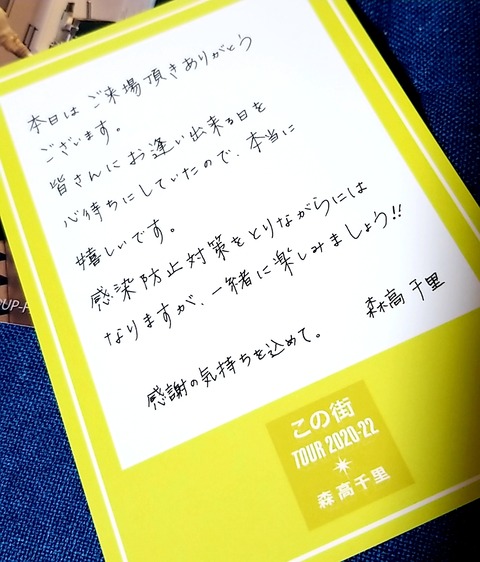 本日は ご来場頂きありがとう
ございます。
皆さんに お逢い出来る日を
心待ちにしていたので、本当に
嬉しいです。
感染防止対策をとりながらには
なりますが、一緒に楽しみましょう!!
森高 千里
感謝の気持ちを込めて。
この街
TOUR 2020-22
森高千里